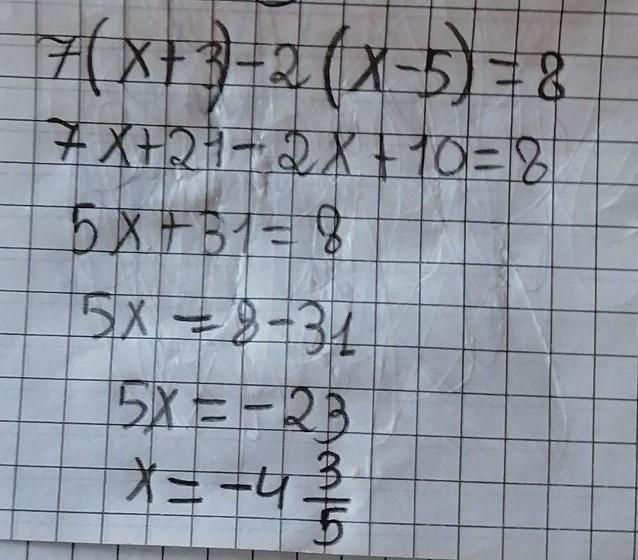 7(x+3)-2(x-5)=8
7x+21-2x+10=8
5x+31=8
5x=8-31
5x=-23
x=-4 3/5